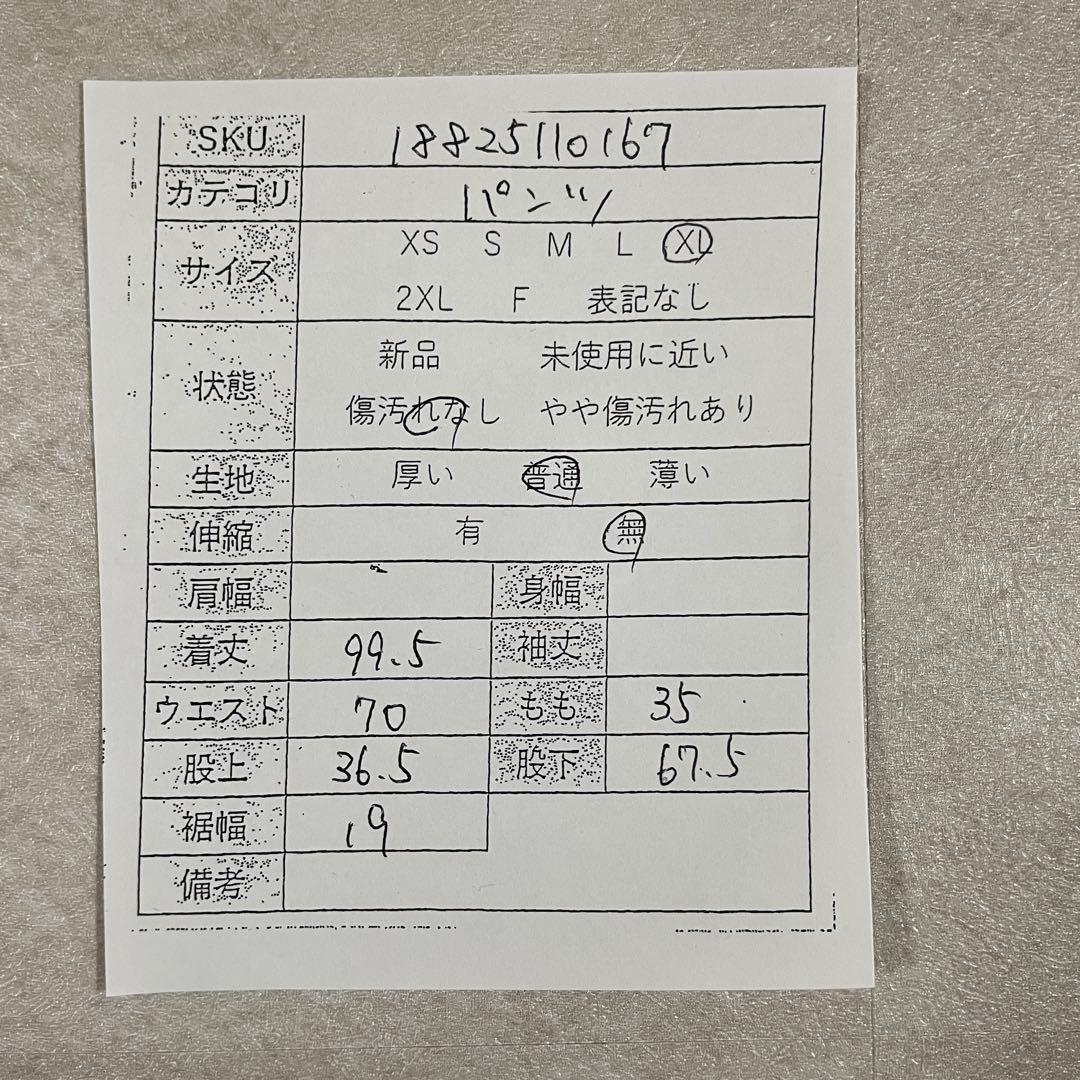 SKU 18825110167
カテゴリ パンツ
サイズ XS S M L XL
2XL F 表記なし
状態 新品 未使用に近い
傷汚れなし やや傷汚れあり
生地 厚い 普通 薄い
伸縮 有 無
肩幅 身幅
着丈 99.5 袖丈
ウエスト 70 もも 35
股上 36.5 股下 67.5
裾幅 19
備考